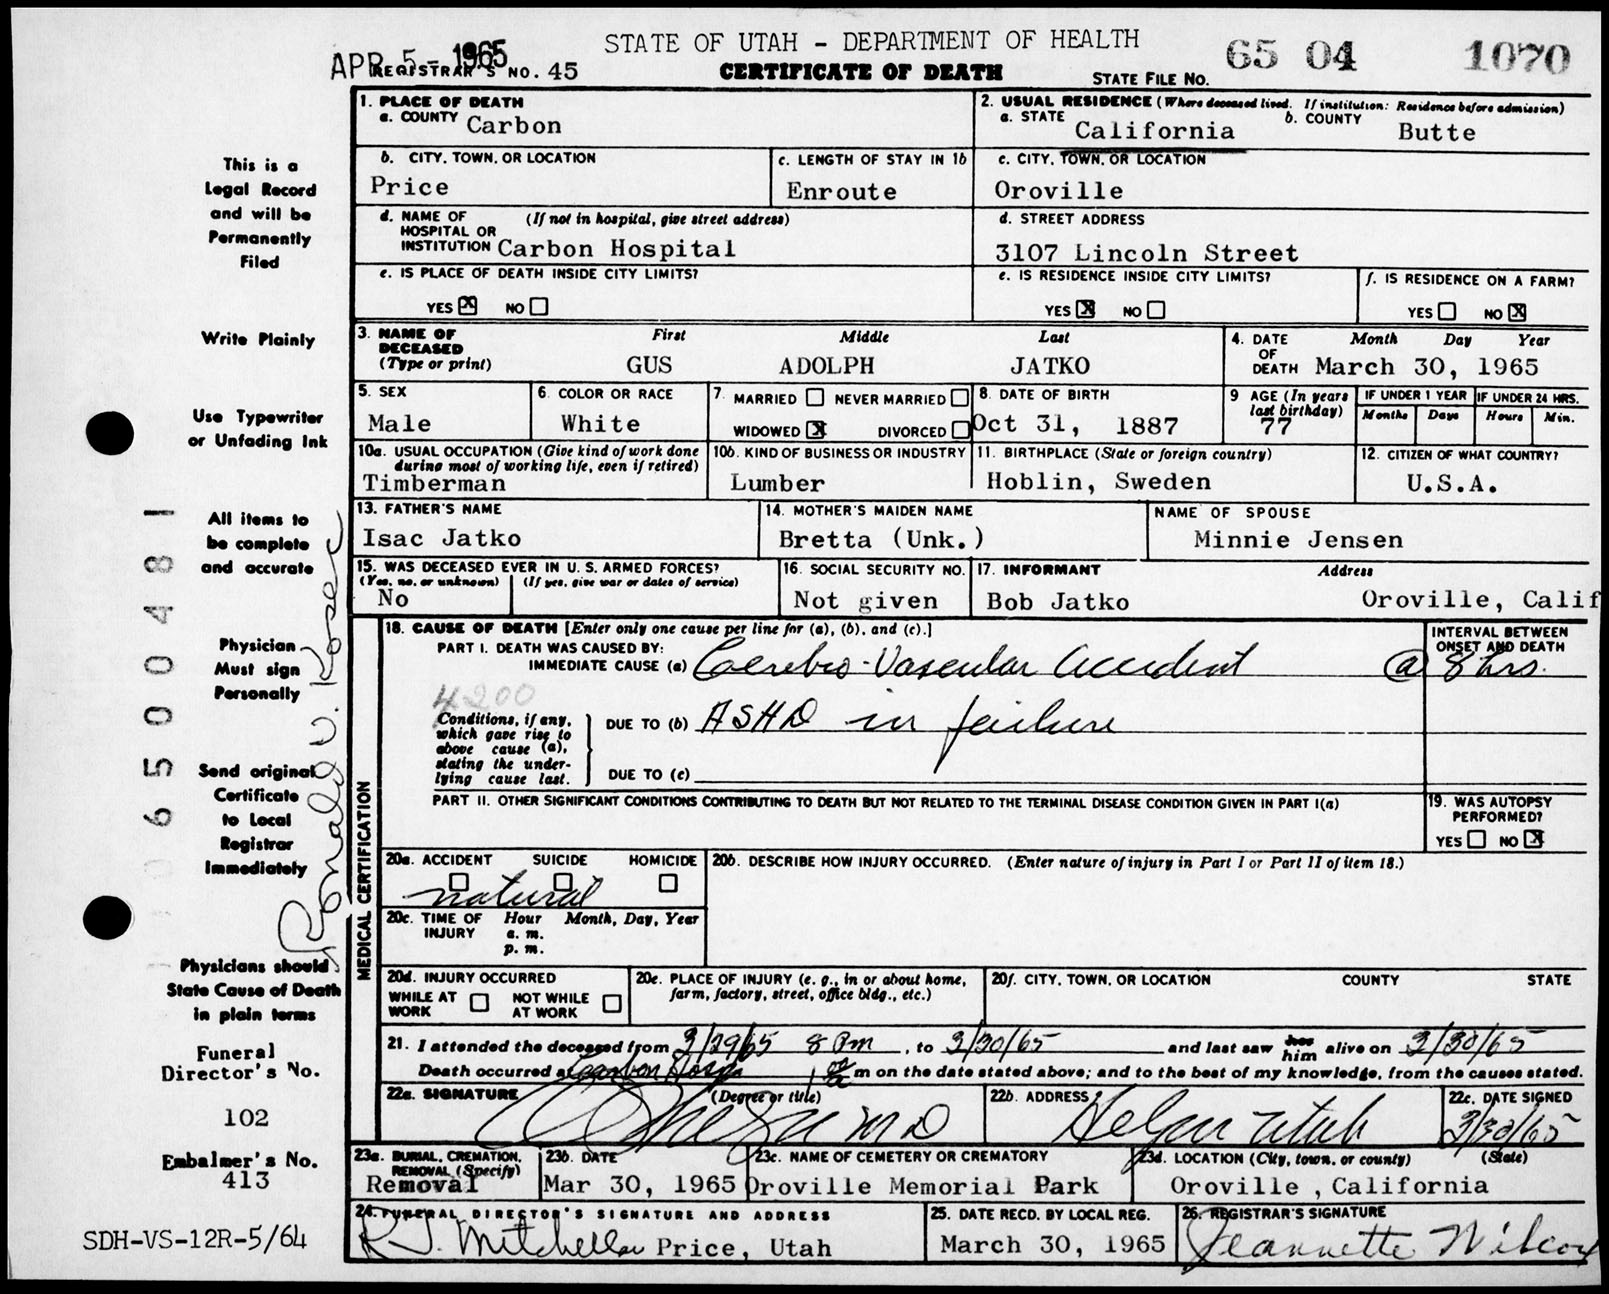 STATE OF UTAH - DEPARTMENT OF HEALTH
65 04 1070
APR 5 - 1965
REGISTRAR'S NO. 45
CERTIFICATE OF DEATH
STATE FILE NO.
1. PLACE OF DEATH
a. COUNTY Carbon
2. USUAL RESIDENCE (Where deceased lived. If institution: Residence before admission)
a. STATE California b. COUNTY Butte
b. CITY, TOWN, OR LOCATION
Price
c. LENGTH OF STAY IN 1b
Enroute
c. CITY, TOWN, OR LOCATION
Oroville
d. NAME OF HOSPITAL OR INSTITUTION (If not in hospital, give street address)
Carbon Hospital
d. STREET ADDRESS
3107 Lincoln Street
e. IS PLACE OF DEATH INSIDE CITY LIMITS?
YES X NO
e. IS RESIDENCE INSIDE CITY LIMITS?
YES X NO
f. IS RESIDENCE ON A FARM?
YES NO X
3. NAME OF DECEASED (Type or print) First Middle Last
GUS ADOLPH JATKO
4. DATE OF DEATH Month Day Year
March 30, 1965
5. SEX
Male
6. COLOR OR RACE
White
7. MARRIED NEVER MARRIED
WIDOWED X DIVORCED
8. DATE OF BIRTH
Oct 31, 1887
9 AGE (In years last birthday)
77
IF UNDER 1 YEAR
Months Days
IF UNDER 24 HRS.
Hours Min.
10a. USUAL OCCUPATION (Give kind of work done during most of working life, even if retired)
Timberman
10b. KIND OF BUSINESS OR INDUSTRY
Lumber
11. BIRTHPLACE (State or foreign country)
Hoblin, Sweden
12. CITIZEN OF WHAT COUNTRY?
U.S.A.
13. FATHER'S NAME
Isac Jatko
14. MOTHER'S MAIDEN NAME
Bretta (Unk.)
NAME OF SPOUSE
Minnie Jensen
15. WAS DECEASED EVER IN U. S. ARMED FORCES?
(Yes, no, or unknown) (If yes, give war or dates of service)
No
16. SOCIAL SECURITY NO.
Not given
17. INFORMANT Address
Bob Jatko Oroville, Calif
MEDICAL CERTIFICATION
18. CAUSE OF DEATH [Enter only one cause per line for (a), (b), and (c).]
INTERVAL BETWEEN ONSET AND DEATH
PART I. DEATH WAS CAUSED BY:
IMMEDIATE CAUSE (a) Cerebro-Vascular Accident @ 8 hrs.
4200
Conditions, if any, which gave rise to above cause (a), stating the underlying cause last.
DUE TO (b) ASHD in failure
DUE TO (c)
PART II. OTHER SIGNIFICANT CONDITIONS CONTRIBUTING TO DEATH BUT NOT RELATED TO THE TERMINAL DISEASE CONDITION GIVEN IN PART I(a)
19. WAS AUTOPSY PERFORMED?
YES NO X
20a. ACCIDENT SUICIDE HOMICIDE
natural
20b. DESCRIBE HOW INJURY OCCURRED. (Enter nature of injury in Part I or Part II of item 18.)
20c. TIME OF INJURY Hour Month, Day, Year
a. m.
p. m.
20d. INJURY OCCURRED
WHILE AT WORK NOT WHILE AT WORK
20e. PLACE OF INJURY (e. g., in or about home, farm, factory, street, office bldg., etc.)
20f. CITY, TOWN, OR LOCATION COUNTY STATE
21. I attended the deceased from 3/29/65 8 Pm, to 3/30/65 and last saw him alive on 3/30/65
Death occurred at Carbon Hosp. m on the date stated above; and to the best of my knowledge, from the causes stated.
22a. SIGNATURE (Degree or title)
MD
22b. ADDRESS
Helper Utah
22c. DATE SIGNED
3/30/65
23a. BURIAL, CREMATION, REMOVAL (Specify)
Removal
23b. DATE
Mar 30, 1965
23c. NAME OF CEMETERY OR CREMATORY
Oroville Memorial Park
23d. LOCATION (City, town, or county) (State)
Oroville, California
24. FUNERAL DIRECTOR'S SIGNATURE AND ADDRESS
R. J. Mitchell Price, Utah
25. DATE RECD. BY LOCAL REG.
March 30, 1965
26. REGISTRAR'S SIGNATURE
Jeannette Wilcox
This is a
Legal Record
and will be
Permanently
Filed
Write Plainly
Use Typewriter
or Unfading Ink
All items to
be complete
and accurate
Physician
Must sign
Personally
Send original
Certificate
to Local
Registrar
Immediately
Physicians should
State Cause of Death
in plain terms
Funeral
Director's No.
102
Embalmer's No.
413
SDH-VS-12R-5/64
06500481
Ronald V.